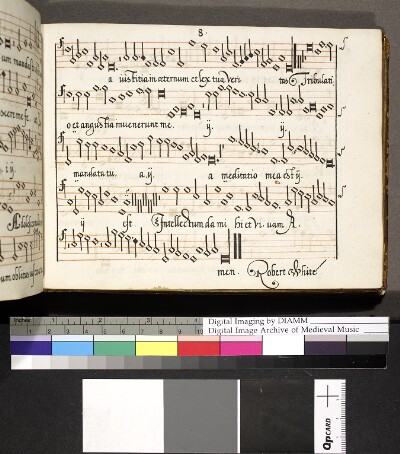 8.
a iustitia in æternum et lex tua veri tas Tribulati
o et angustia invenerunt me. ij. ij.
mandata tu. a. ij. a meditatio mea est ij.
ij est Intellectum da mi hi et vi. vam A.
men. Robert White
Inches
Digital Imaging by DIAMM
Digital Image Archive of Medieval Music
QPCARD